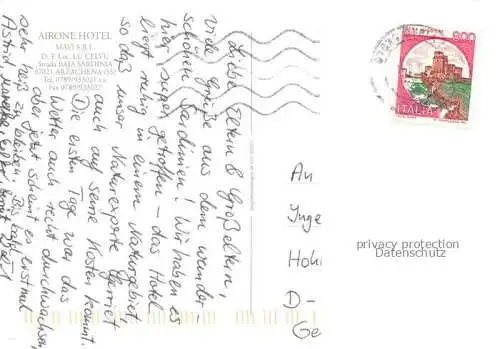 AIRONE HOTEL
MAVI S.R.L.
D. F. Loc. LU CELVU
Strada BAJA SARDINIA
07021 ARZACHENA (SS)
Tel. 0789/933021 r.a.
Fax 0789/933027
Liebe Eltern & Großeltern,
viele Grüße aus dem wunder-
schönen Sardinien! Wir haben es
hier super getroffen – das Hotel
liegt ruhig in einem Naturgebiet,
so daß unser Naturexperte Gerriet
auch auf seine Kosten kommt.
Die ersten Tage war das
Wetter auch recht durchwachsen,
aber jetzt scheint es
sehr heiß zu bleiben. Bis bald
Astrid
800
ITALIA
An
Inge
Hohl
D-
Ge
privacy protection
Datenschutz